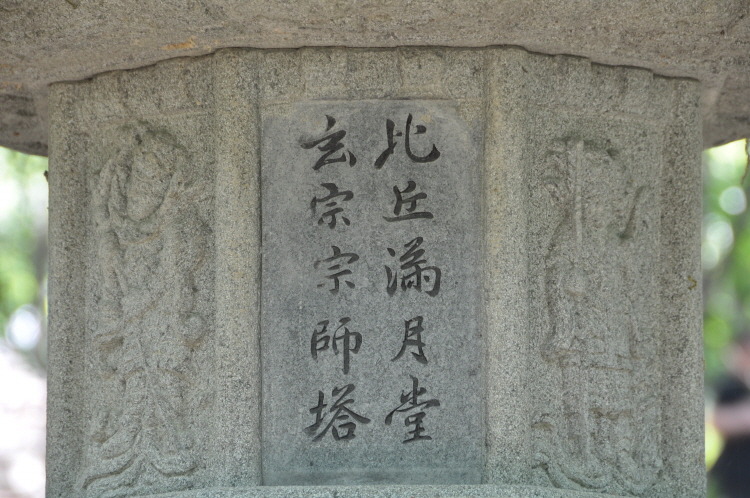 比丘滿月堂
玄宗宗師塔